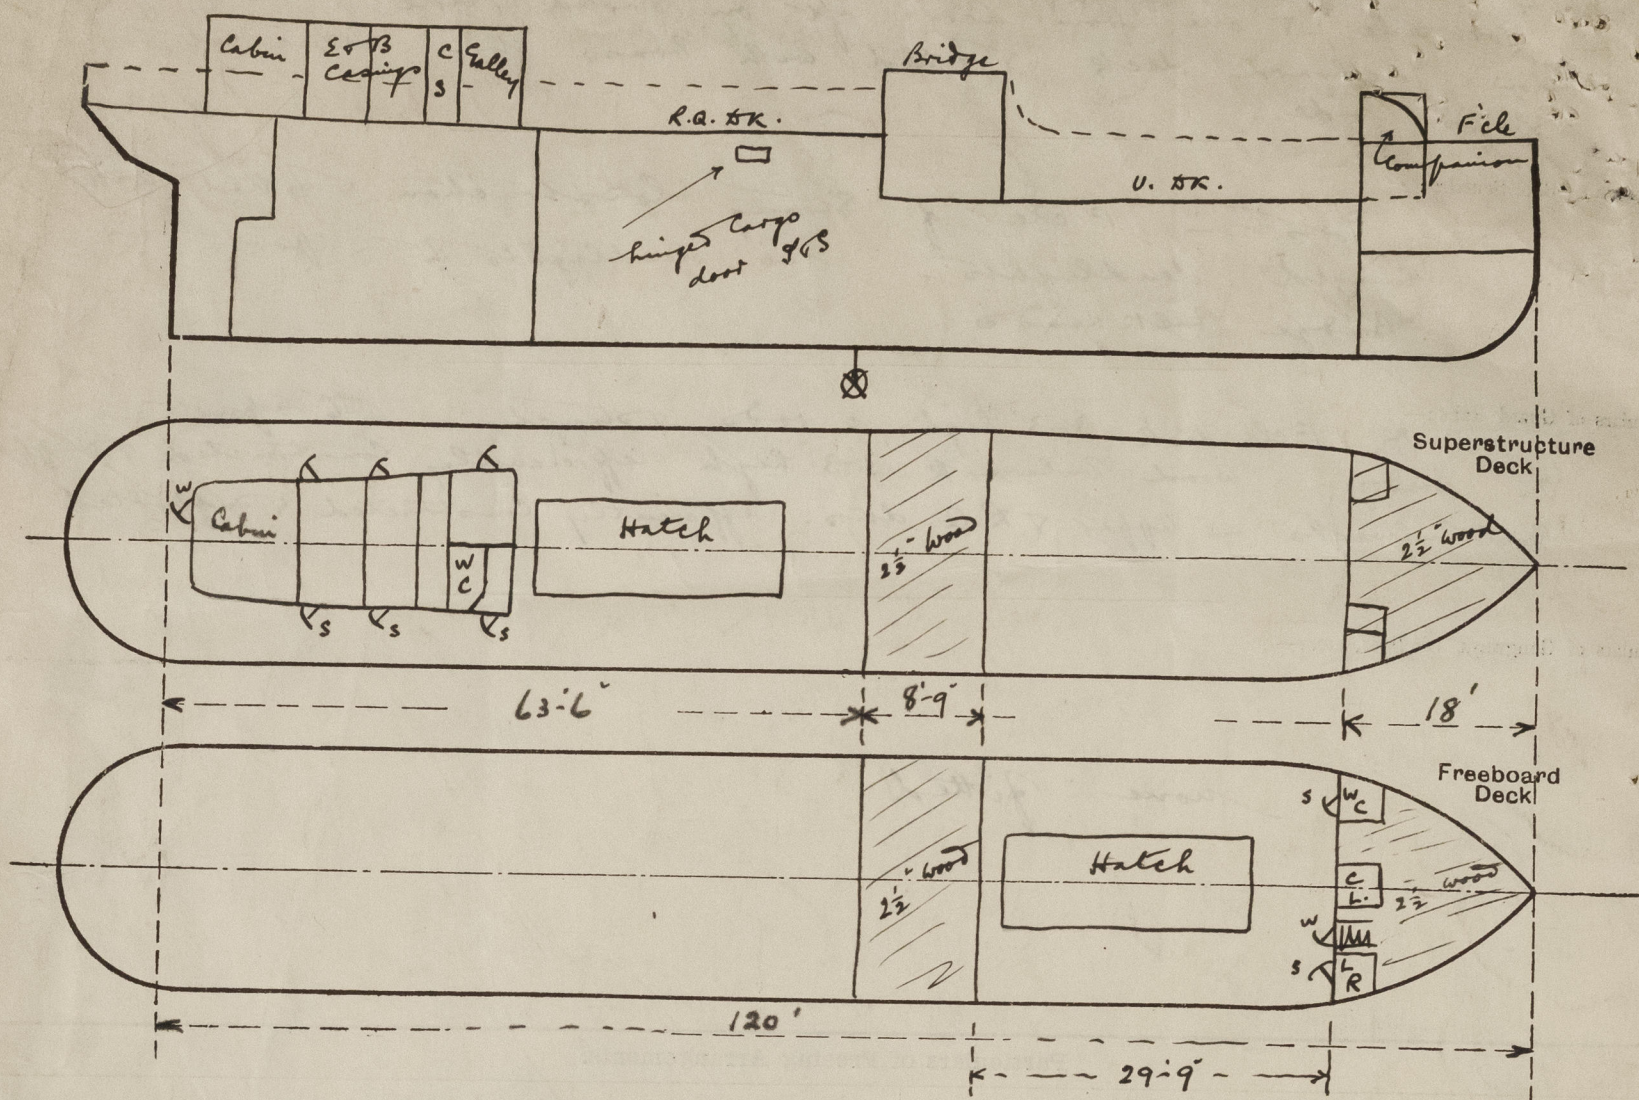 Cabin
E & B
Casings
C
S
Galley
Bridge
R.Q. DK.
F'cle
Companion
U. DK.
hinged Cargo
door P&S
Superstructure
Deck
W
Cabin
Hatch
W
C
2½" wood
2½" wood
S
S
S
63'-6"
8'-9"
18'
Freeboard
Deck
S
W
C
Hatch
2½" wood
C
L.
2½" wood
W
S
L
R
120'
29'-9"